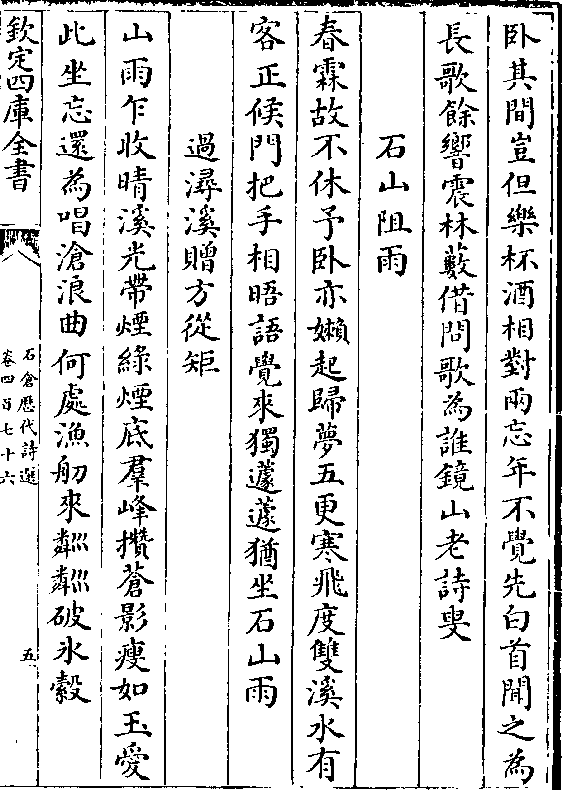 卧其間豈但樂杯酒相對兩忘年不覺先白首聞之為
長歌餘響震林藪借問歌為誰鏡山老詩叟
石山阻雨
春霖故不休予卧亦嬾起歸夢五更寒飛度雙溪水有
客正候門把手相晤語覺來獨蘧蘧猶坐石山雨
過潯溪贈方從矩
山雨乍收晴溪光帶煙綠煙底羣峰攢蒼影瘦如玉愛
此坐忘還為唱滄浪曲何處漁舠來粼粼破氷縠
欽定四庫全書
石倉歷代詩選
卷四百七十六
五